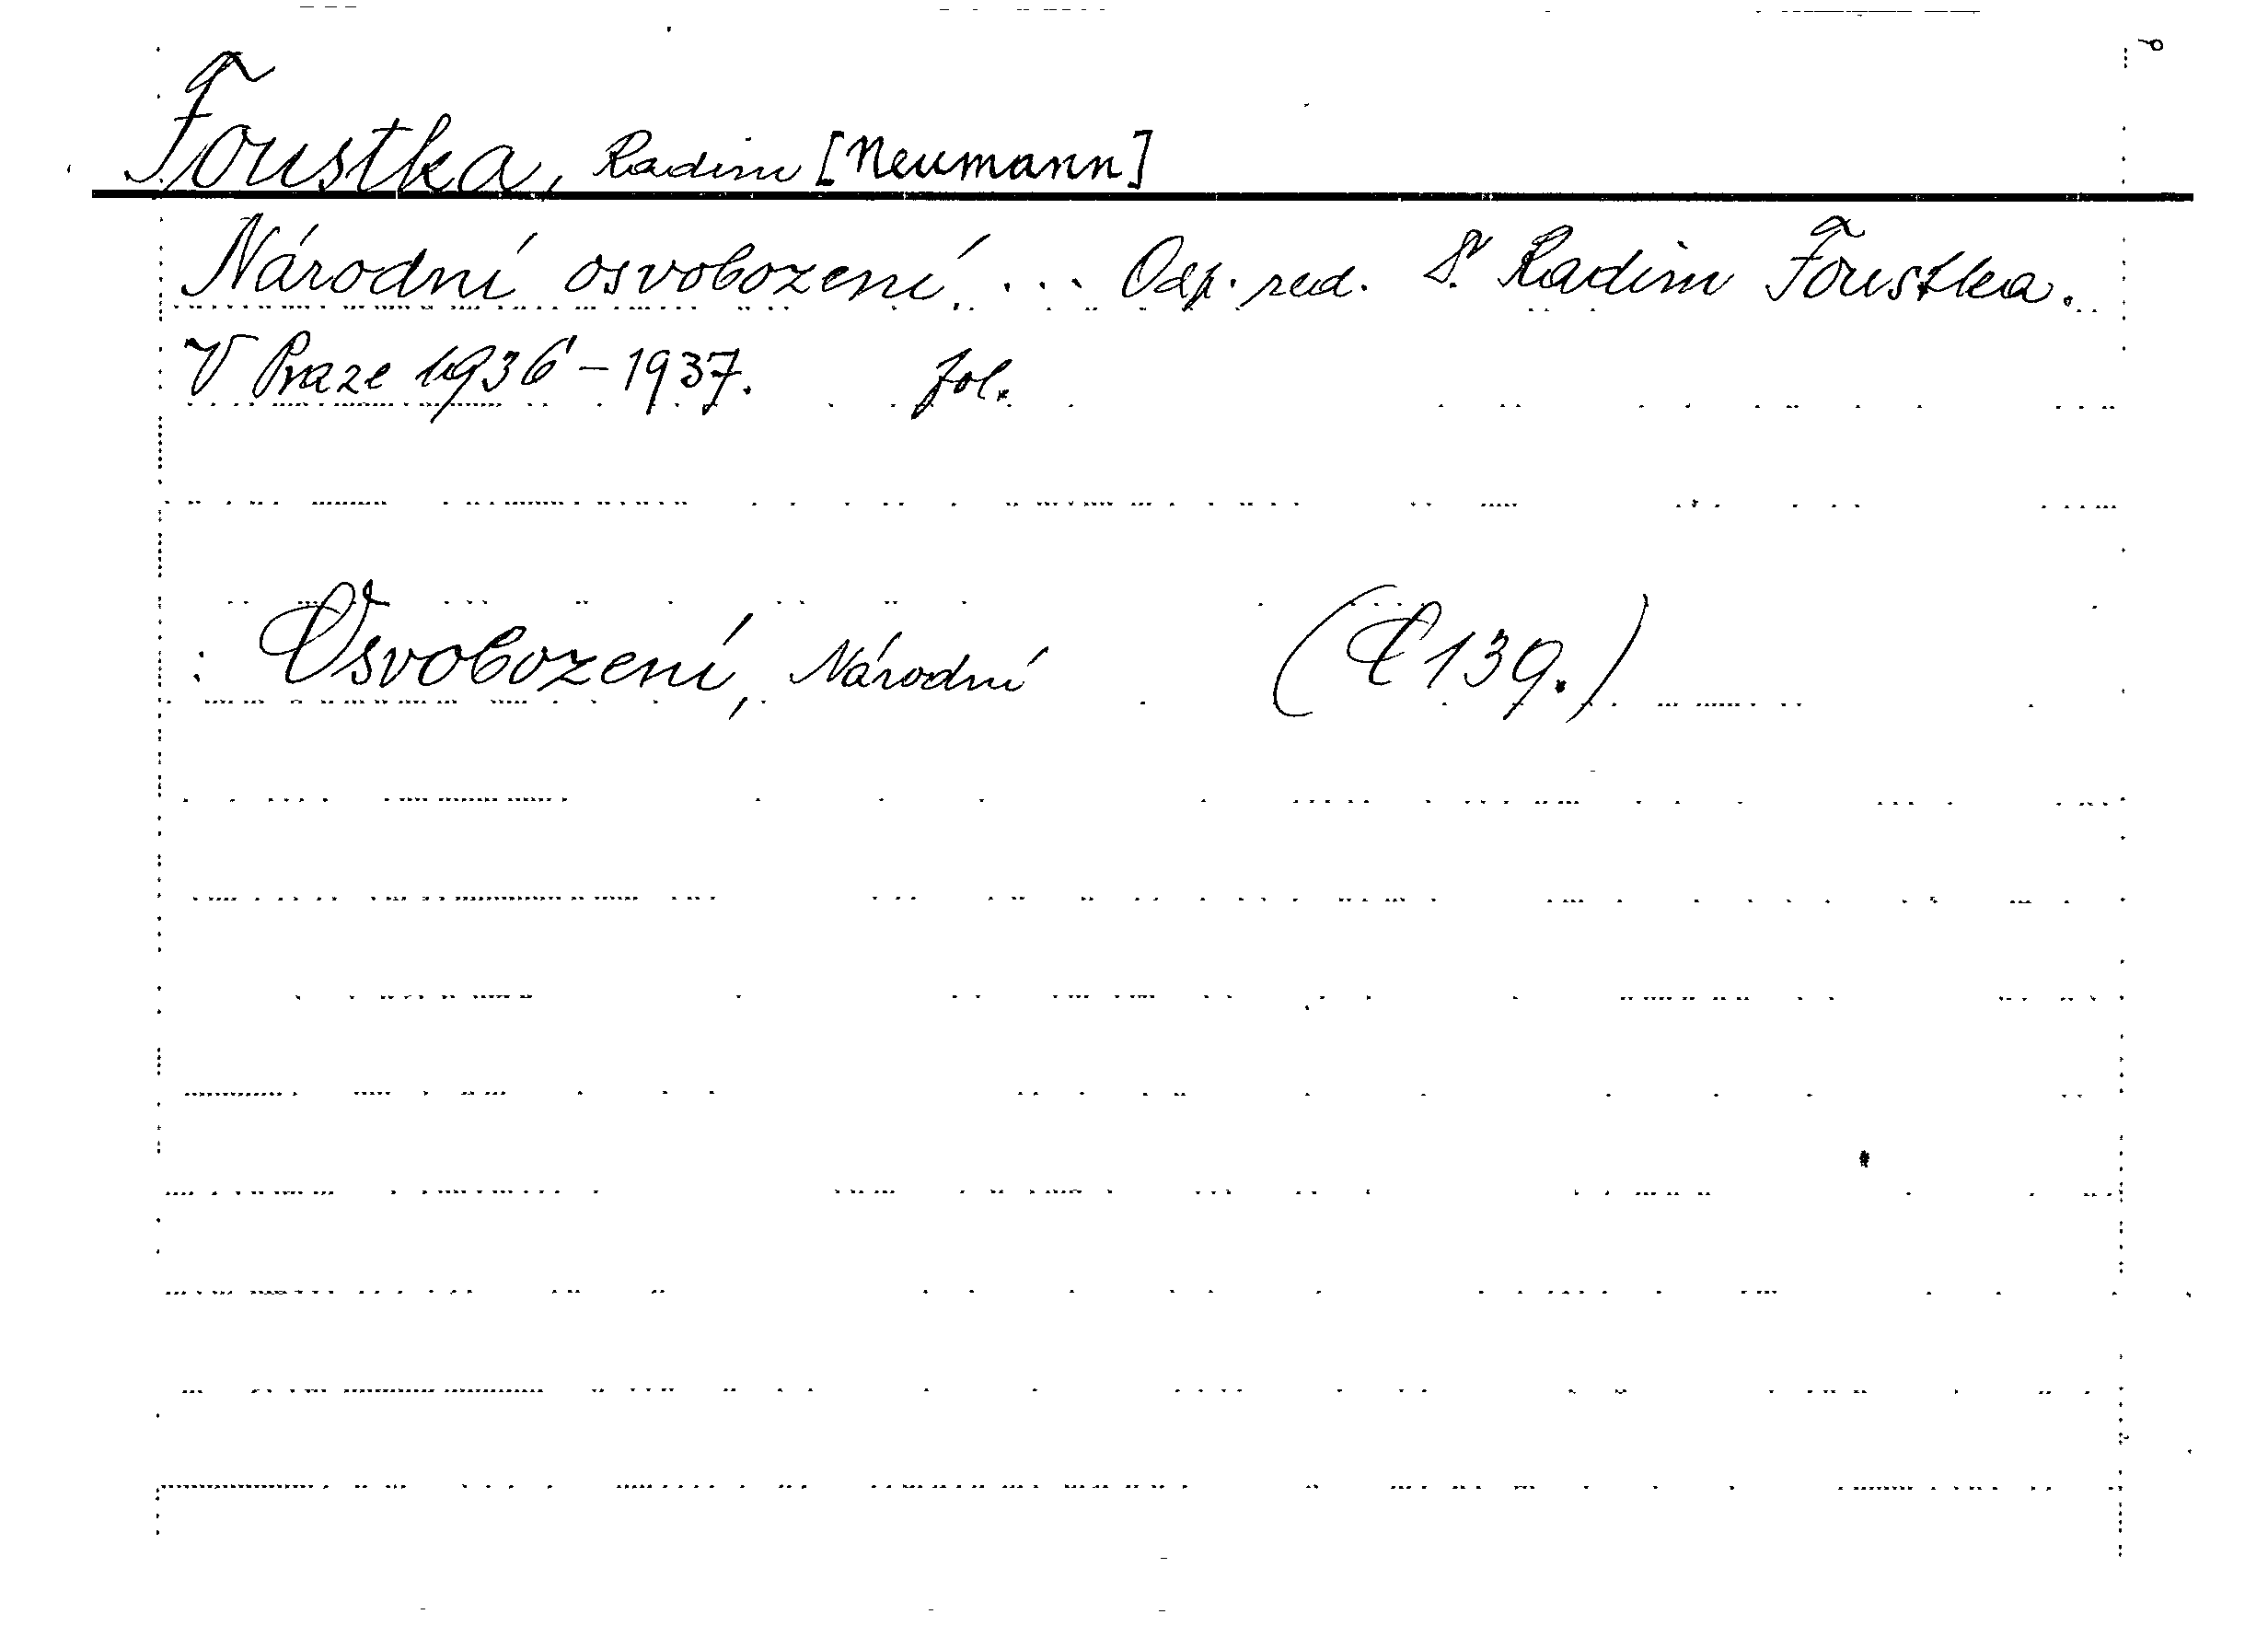 Foustka, Radim [Neumann]
Národní osvobození... Odp. red. Dr Radim Foustka.
V Praze 1936-1937. fol.
Osvobození, Národní (C 139.)